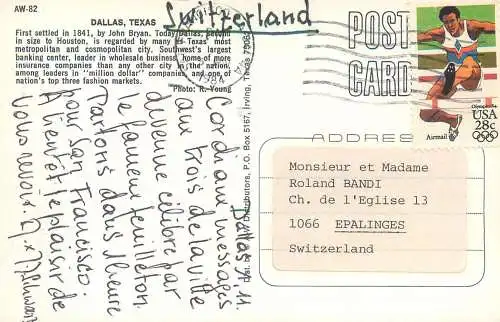 AW-82
DALLAS, TEXAS
Switzerland
First settled in 1841, by John Bryan. Today Dallas, second
in size to Houston, is regarded by many as Texas' most
metropolitan and cosmopolitan city. Southwest's largest
banking center, leader in wholesale business, home of more
insurance companies than any city in the nation,
among leaders in "million dollar" companies, and one of
nation's top three fashion markets.
Photo: R. Young
POST
CARD
1984
Olympics 84
USA
28c
Airmail
ADDRESS
Distributors, P.O. Box 5167, Irving, Texas 7506
Monsieur et Madame
Roland BANDI
Ch. de l'Eglise 13
1066 EPALINGES
Switzerland
Dallas
Cordiaux messages
aux trois de la ville
devenue célèbre par
le fameux feuilleton.
Partons dans 1 heure
pour San Francisco.
A bientôt le plaisir de
vous revoir.